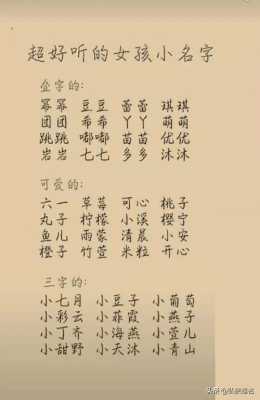 超好听的女孩小名字
叠字的:
幂幂 豆豆 蕾蕾 琪琪
团团 希希 丫丫 萌萌
跳跳 嘟嘟 苗苗 优优
岩岩 七七 乡乡 沐沐
可爱的:
六一 草莓 可心 桃子
丸子 柠檬 小溪 樱宁
鱼儿 雨蒙 清晨 小安
橙子 竹萱 米粒 开心
三字的:
小七月 小豆子 小葡萄
小彩云 小菲霞 小燕子
小丁齐 小海燕 小萱儿
小甜野 小天沐 小青山